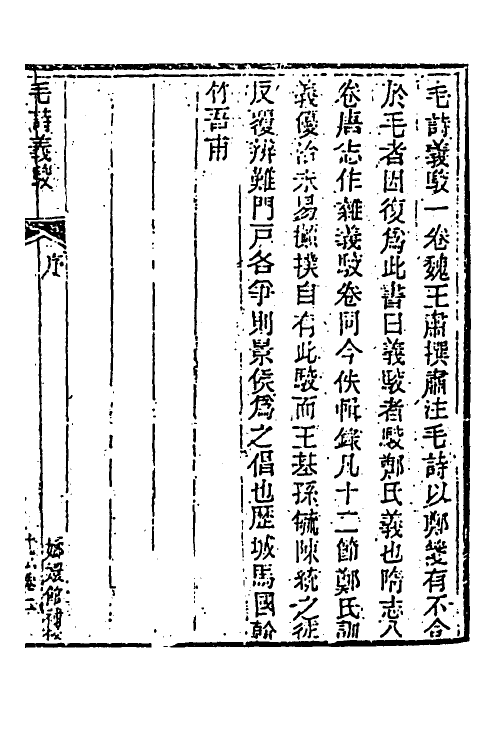 毛詩義駁一卷魏王肅撰肅注毛詩以鄭箋有不合
於毛者因復爲此書曰義駁者駁鄭氏義也隋志八
卷唐志作雜義駁卷同今佚輯錄凡十二節鄭氏訓
義優洽未易擯撲自有此駁而王基孫毓陳統之徒
反覆辨難門戸各爭則景侯爲之倡也歴城馬國翰
竹吾甫
毛詩義駁
序
嫏嬛館補校